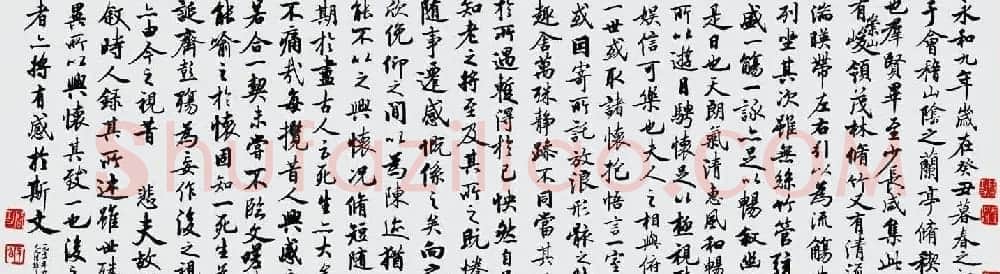 永和九年歲在癸丑暮春之
于會稽山陰之蘭亭脩稧
也群賢畢至少長咸集此
有崇山峻領茂林脩竹又有清
湍暎帶左右引以為流觴
列坐其次雖無絲竹管弦
盛一觴一詠亦足以暢敘幽
是日也天朗氣清惠風和暢
所以遊目騁懷足以極視聽
娛信可樂也夫人之相與俯
一世或取諸懷抱悟言一室
或因寄所託放浪形骸之
趣舍萬殊靜躁不同當其
於所遇暫得於己怏然自
知老之將至及其所之既惓
隨事遷感慨係之矣向之
欣俛仰之間以為陳迹猶
能不以之興懷況脩短隨
期於盡古人云死生亦大矣
不痛哉每攬昔人興感
若合一契未嘗不臨文嗟
能喻之於懷固知一死生
誕齊彭殤為妄作後之視
亦由今之視昔 悲夫故
敘時人錄其所述雖世殊
異所以興懷其致一也後之
者亦將有感於斯文